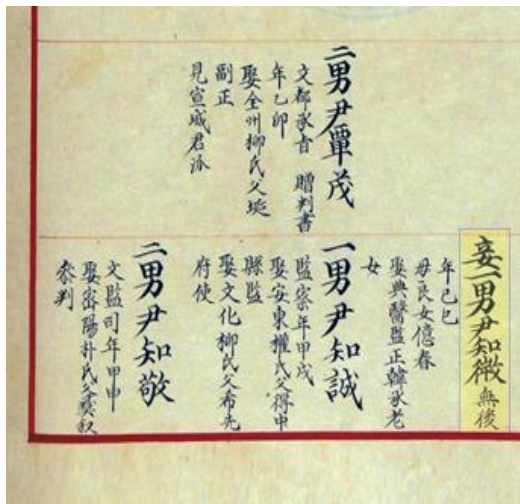 二男尹覃茂
文都承旨 贈判書
年乙卯
娶全州柳氏父埏
副正
見宣城君派
妾一男尹知微無後
年己巳
母良女億春
娶典醫監正韓承老
女
一男尹知誠
監察年甲戌
娶安東權氏父得中
縣監
娶文化柳氏父希先
府使
二男尹知敬
文監司年甲申
娶密陽朴氏父彛叙
叅判